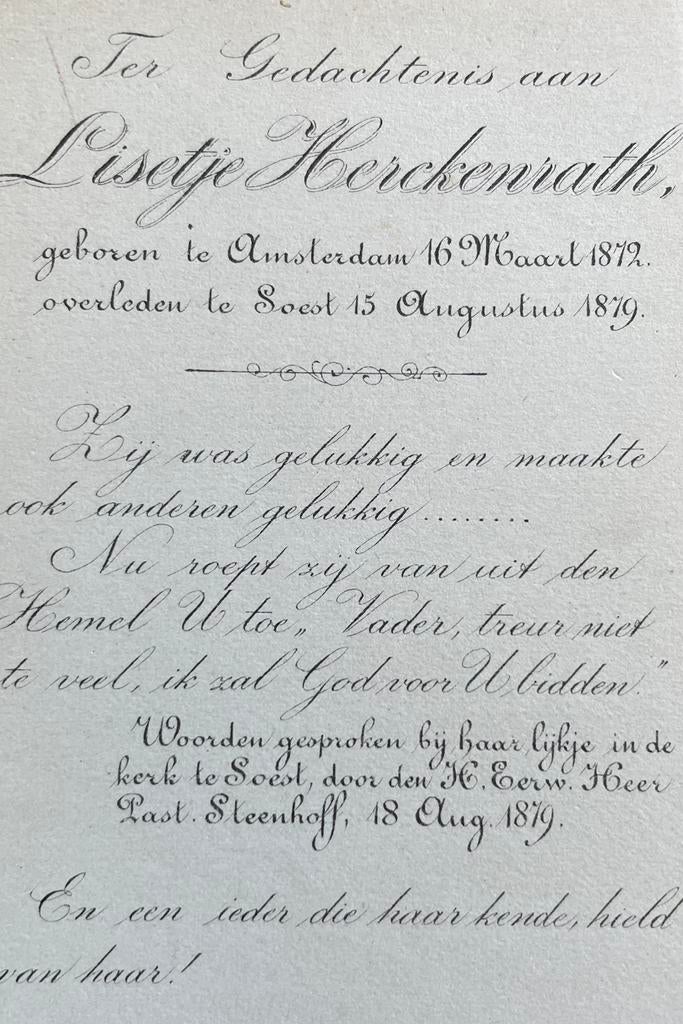 Ter Gedachtenis aan
Lisetje Herckenrath,
geboren te Amsterdam 16 Maart 1872.
overleden te Soest 15 Augustus 1879.
Zij was gelukkig en maakte
ook anderen gelukkig........
Nu roept zij van uit den
Hemel U toe „ Vader, treur niet
te veel, ik zal God voor U bidden."
Woorden gesproken bij haar lijkje in de
kerk te Soest, door den H. Eerw. Heer
Past. Steenhoff, 18 Aug. 1879.
En een ieder die haar kende, hield
van haar!